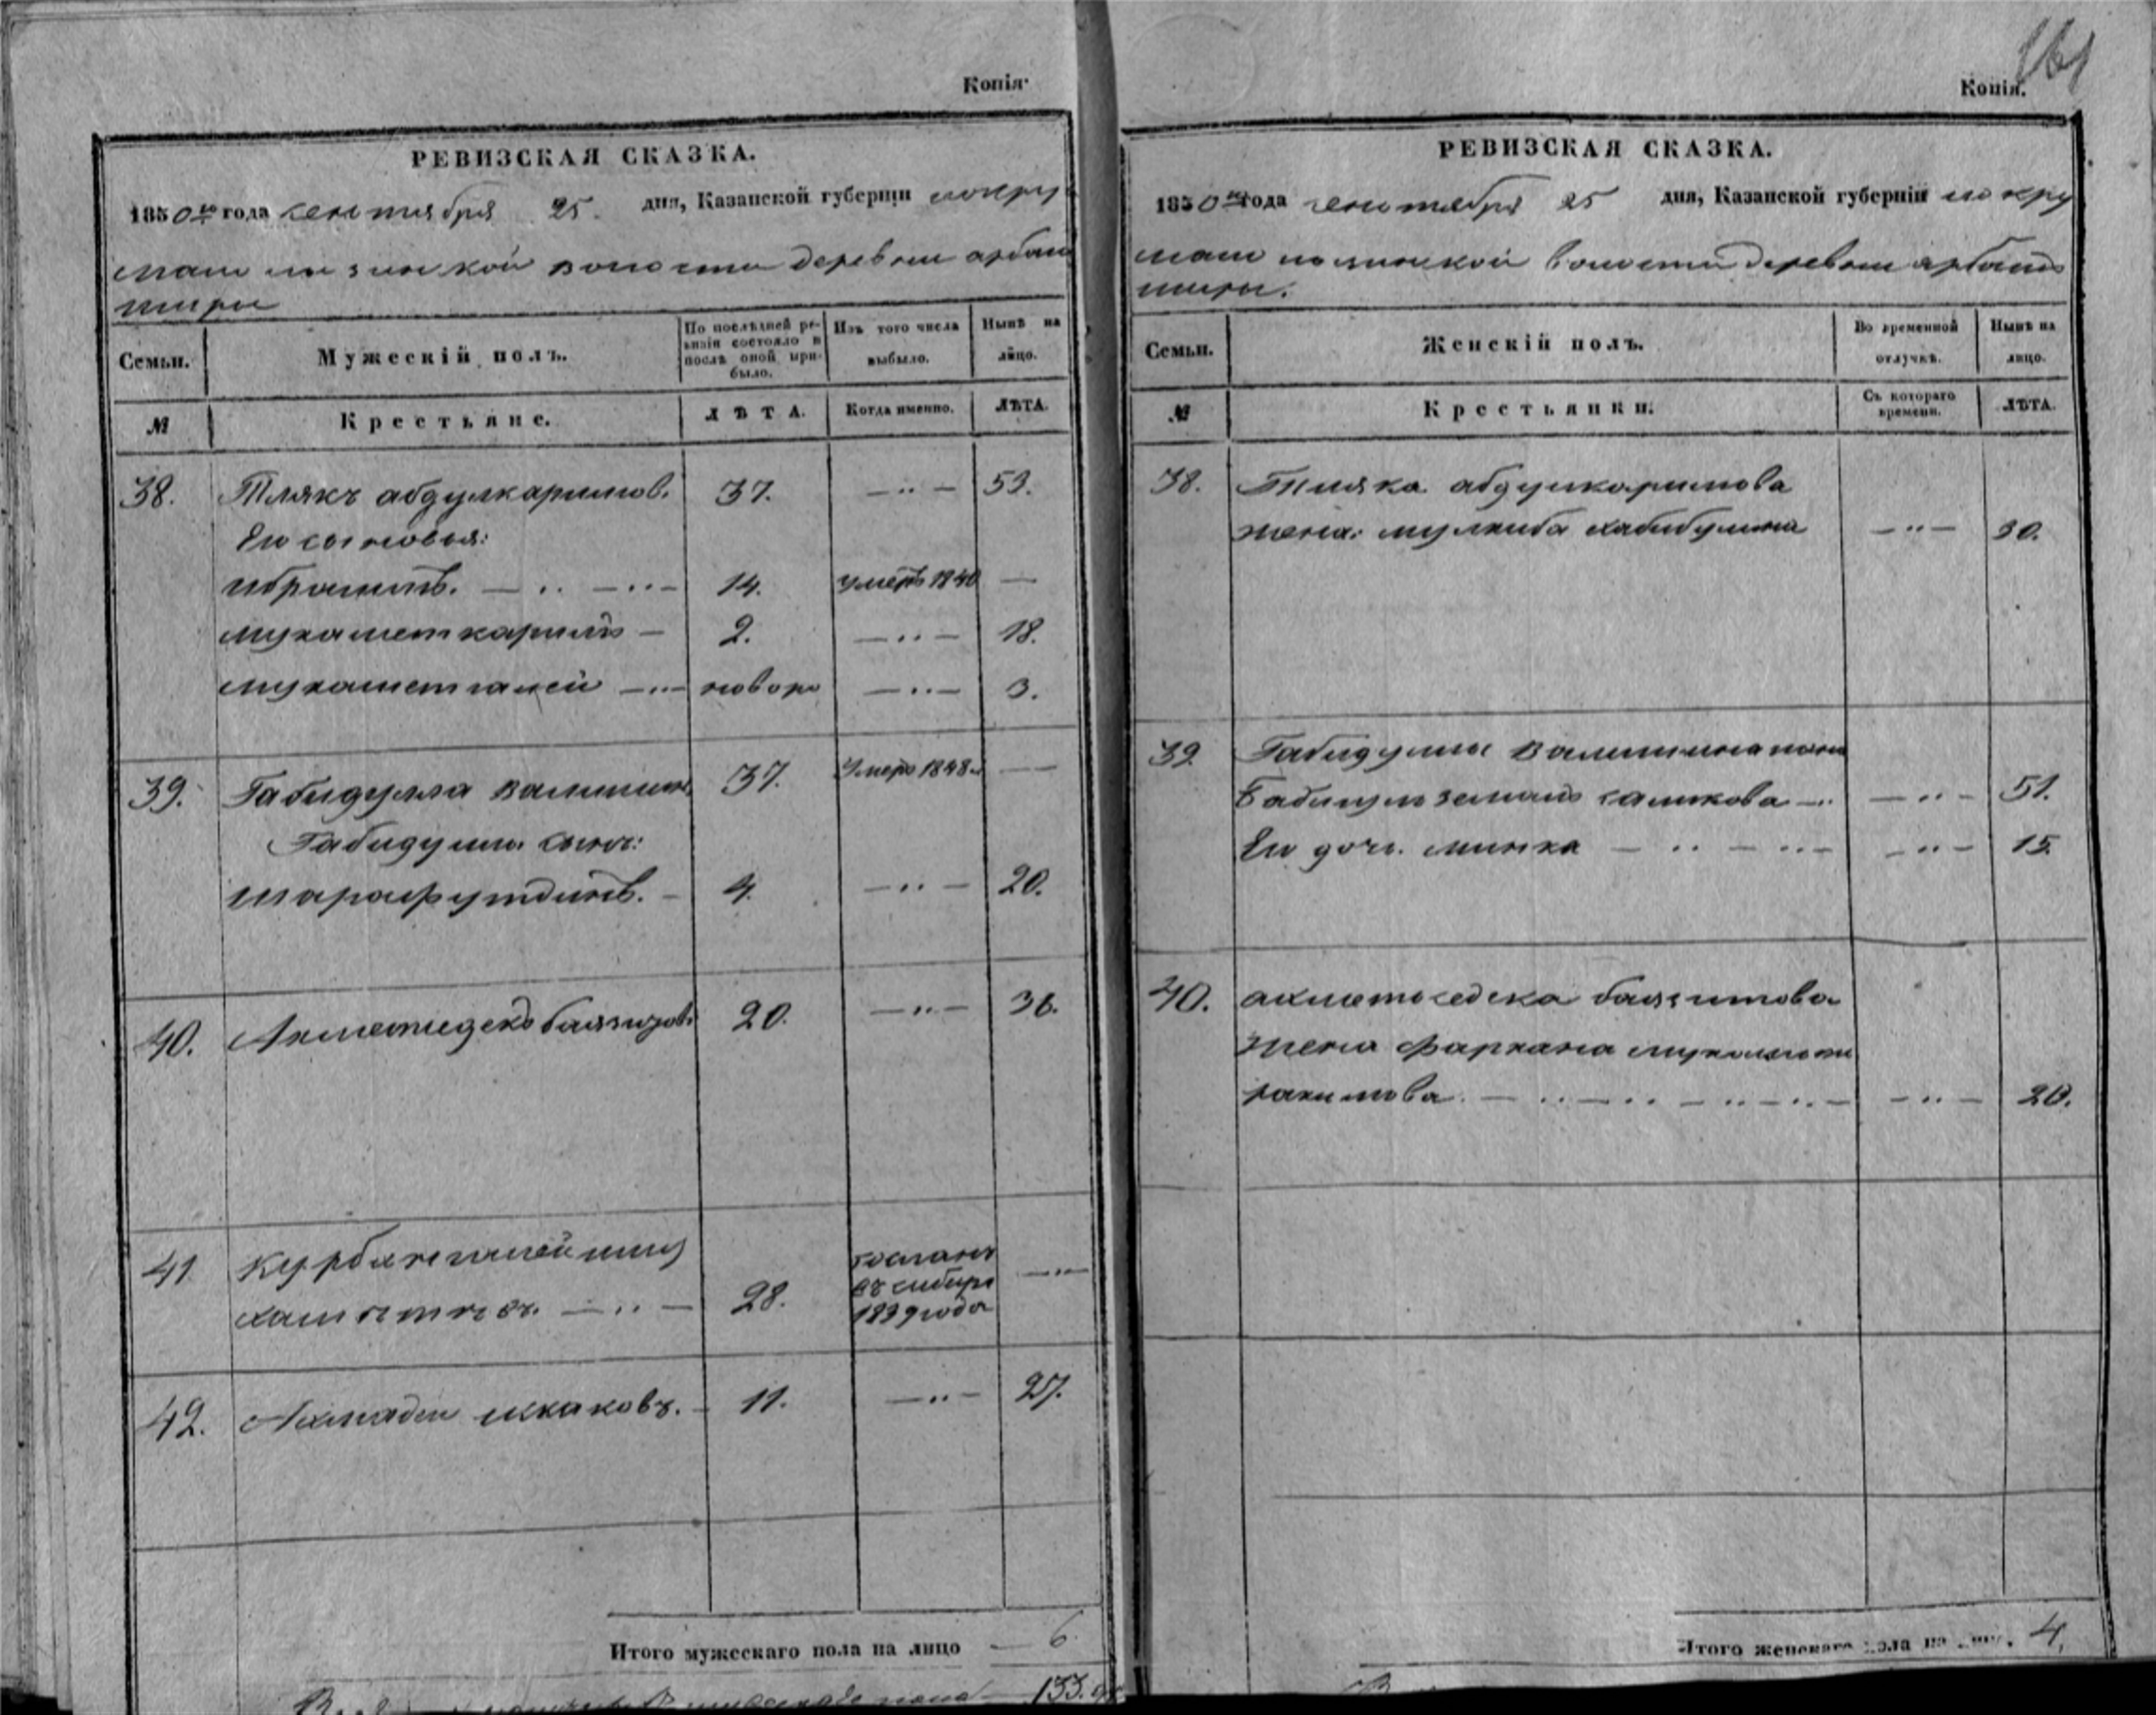 Копія.
РЕВИЗСКАЯ СКАЗКА.
1850го года сентября 25. дня, Казанской губерніи
волости деревни арбаш
Семьи. Мужескій полъ. По послѣдней ревизіи состояло и послѣ оной прибыло. Изъ того числа выбыло. Нынѣ на лицо.
№ Крестьяне. ЛѢТА. Когда именно. ЛѢТА.
38. Тлякъ абдулкаримов. 37. — 53.
Его сыновья:
ибрагимъ. — 14. умеръ 1840 —
мухаметкаримъ — 2. — 18.
мухаметгалей — новоро — 3.
39. Габидулла валишинъ 37. Умеръ 1848 —
Габидуллы сынъ:
шарафутдинъ. — 4. — 20.
40. баязитовъ 20. — 36.
41 курбангалей
28. сосланъ въ сибирь 1839 года —
42. исхаковъ. — 11. — 27.
Итого мужескаго пола на лицо — 6
133.
161
Копія.
РЕВИЗСКАЯ СКАЗКА.
1850го года сентября 25 дня, Казанской губерніи
волости деревни арбаш
Семьи. Женскій полъ. Во временной отлучкѣ. Нынѣ на лицо.
№ Крестьянки. Съ котораго времени. ЛѢТА.
38. Тляка абдулкаримова
жена: хабибулина — 30.
39. Габидуллы валишина жена
— 51.
Его дочь минка — 15.
40. баязитова
жена фархана мухамет
рахимова. — 20.
Итого женскаго пола на лицо. 4.